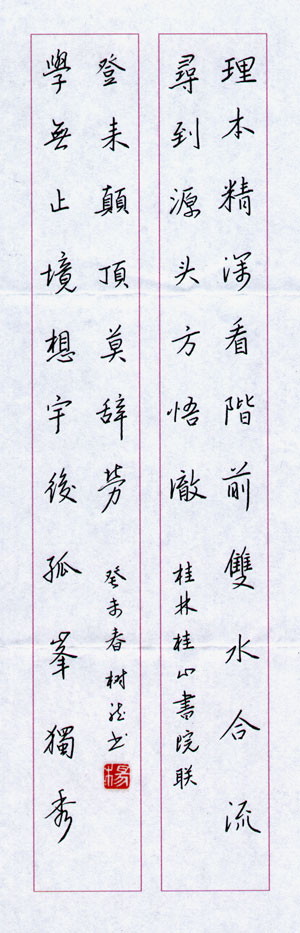 理本精深看階前雙水合流
尋到源头方悟澈
桂林桂山書院联
學無止境想宇後孤峯獨秀
登来顛頂莫辞劳
癸未春树龙书
楊